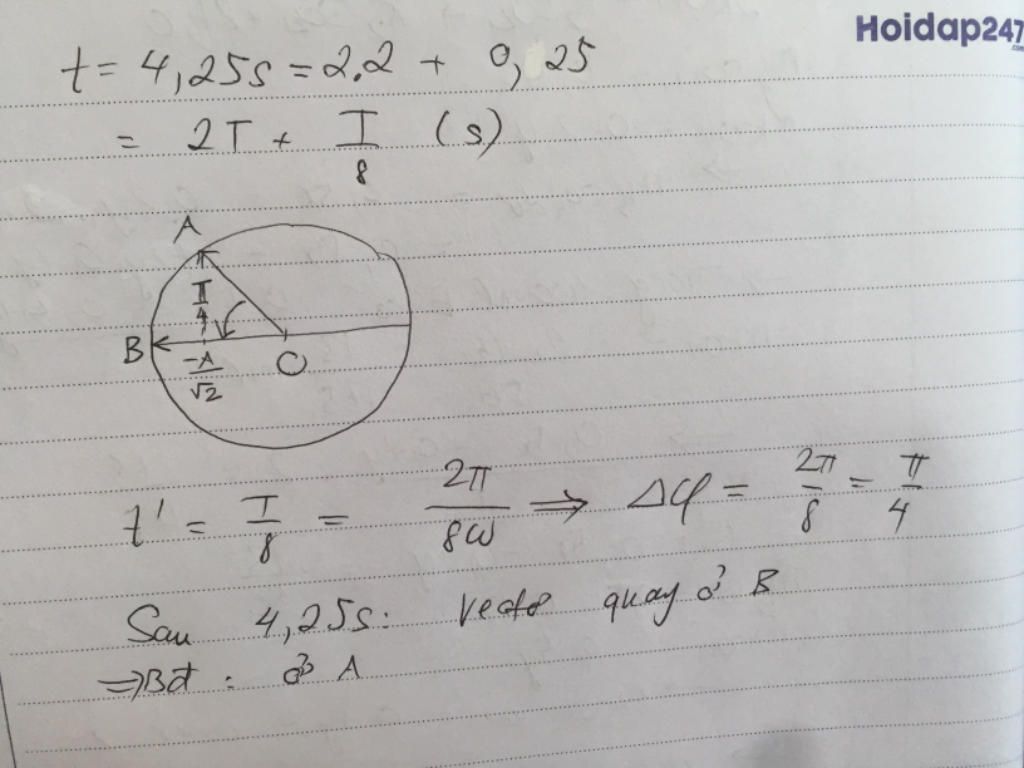 Hoidap247
.com
t = 4,25s = 2.2 + 0,25
= 2T + T/8 (s)
A
π/4
B
-A/√2
O
t' = T/8 = 2π/8ω ⇒ Δφ = 2π/8 = π/4
Sau 4,25s: Vectơ quay ở B
⇒ Bđ : ở A